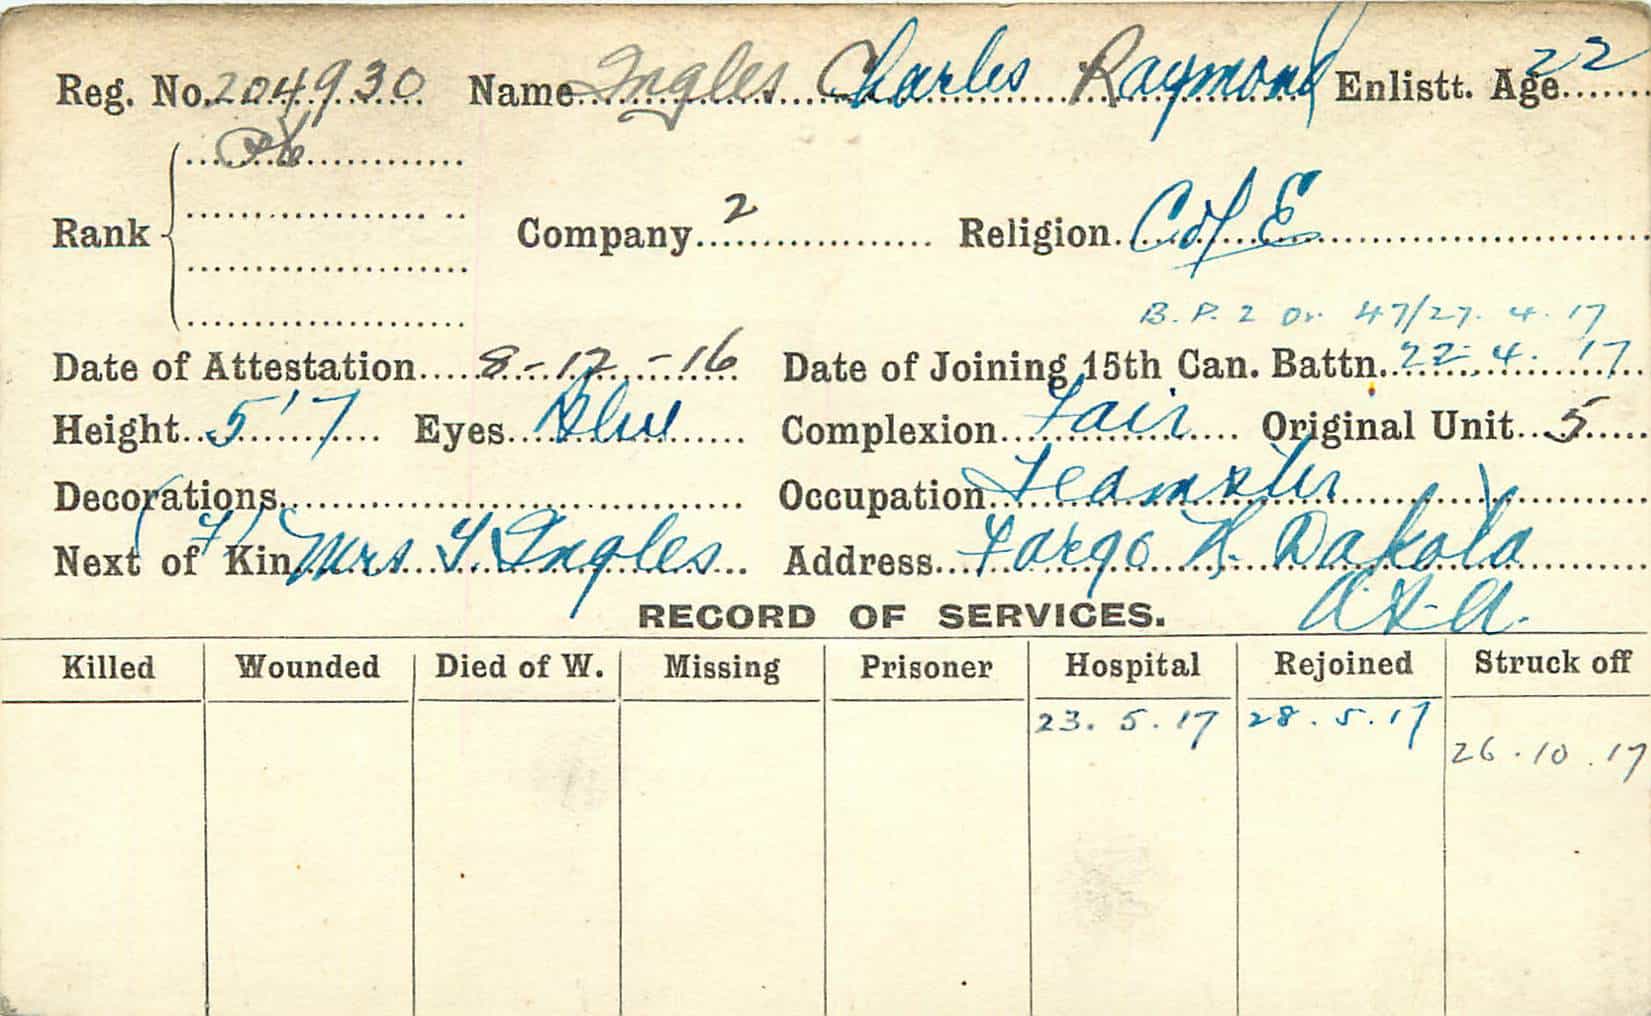 Reg. No. 204930 Name Ingles Charles Raymond Enlistt. Age 22
Pte
Rank Company 2 Religion C of E
B. P. 2 Or. 47/27. 4. 17
Date of Attestation 8-12-16 Date of Joining 15th Can. Battn. 22.4.17
Height 5'7 Eyes Blue Complexion Fair Original Unit 5
Decorations Occupation Teamster
Next of Kin Mrs Ingles Address Fargo N. Dakota
RECORD OF SERVICES. U.S.A.
Killed Wounded Died of W. Missing Prisoner Hospital Rejoined Struck off
23.5.17 28.5.17
26.10.17